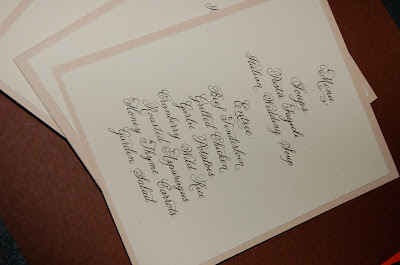 Menu
Soups
Pasta Fagiole
Italian Wedding Soup
Entree
Beef Tenderloin
Grilled Chicken
Garlic Potatoes
Cranberry Wild Rice
Roasted Asparagus
Honey Thyme Carrots
Garden Salad